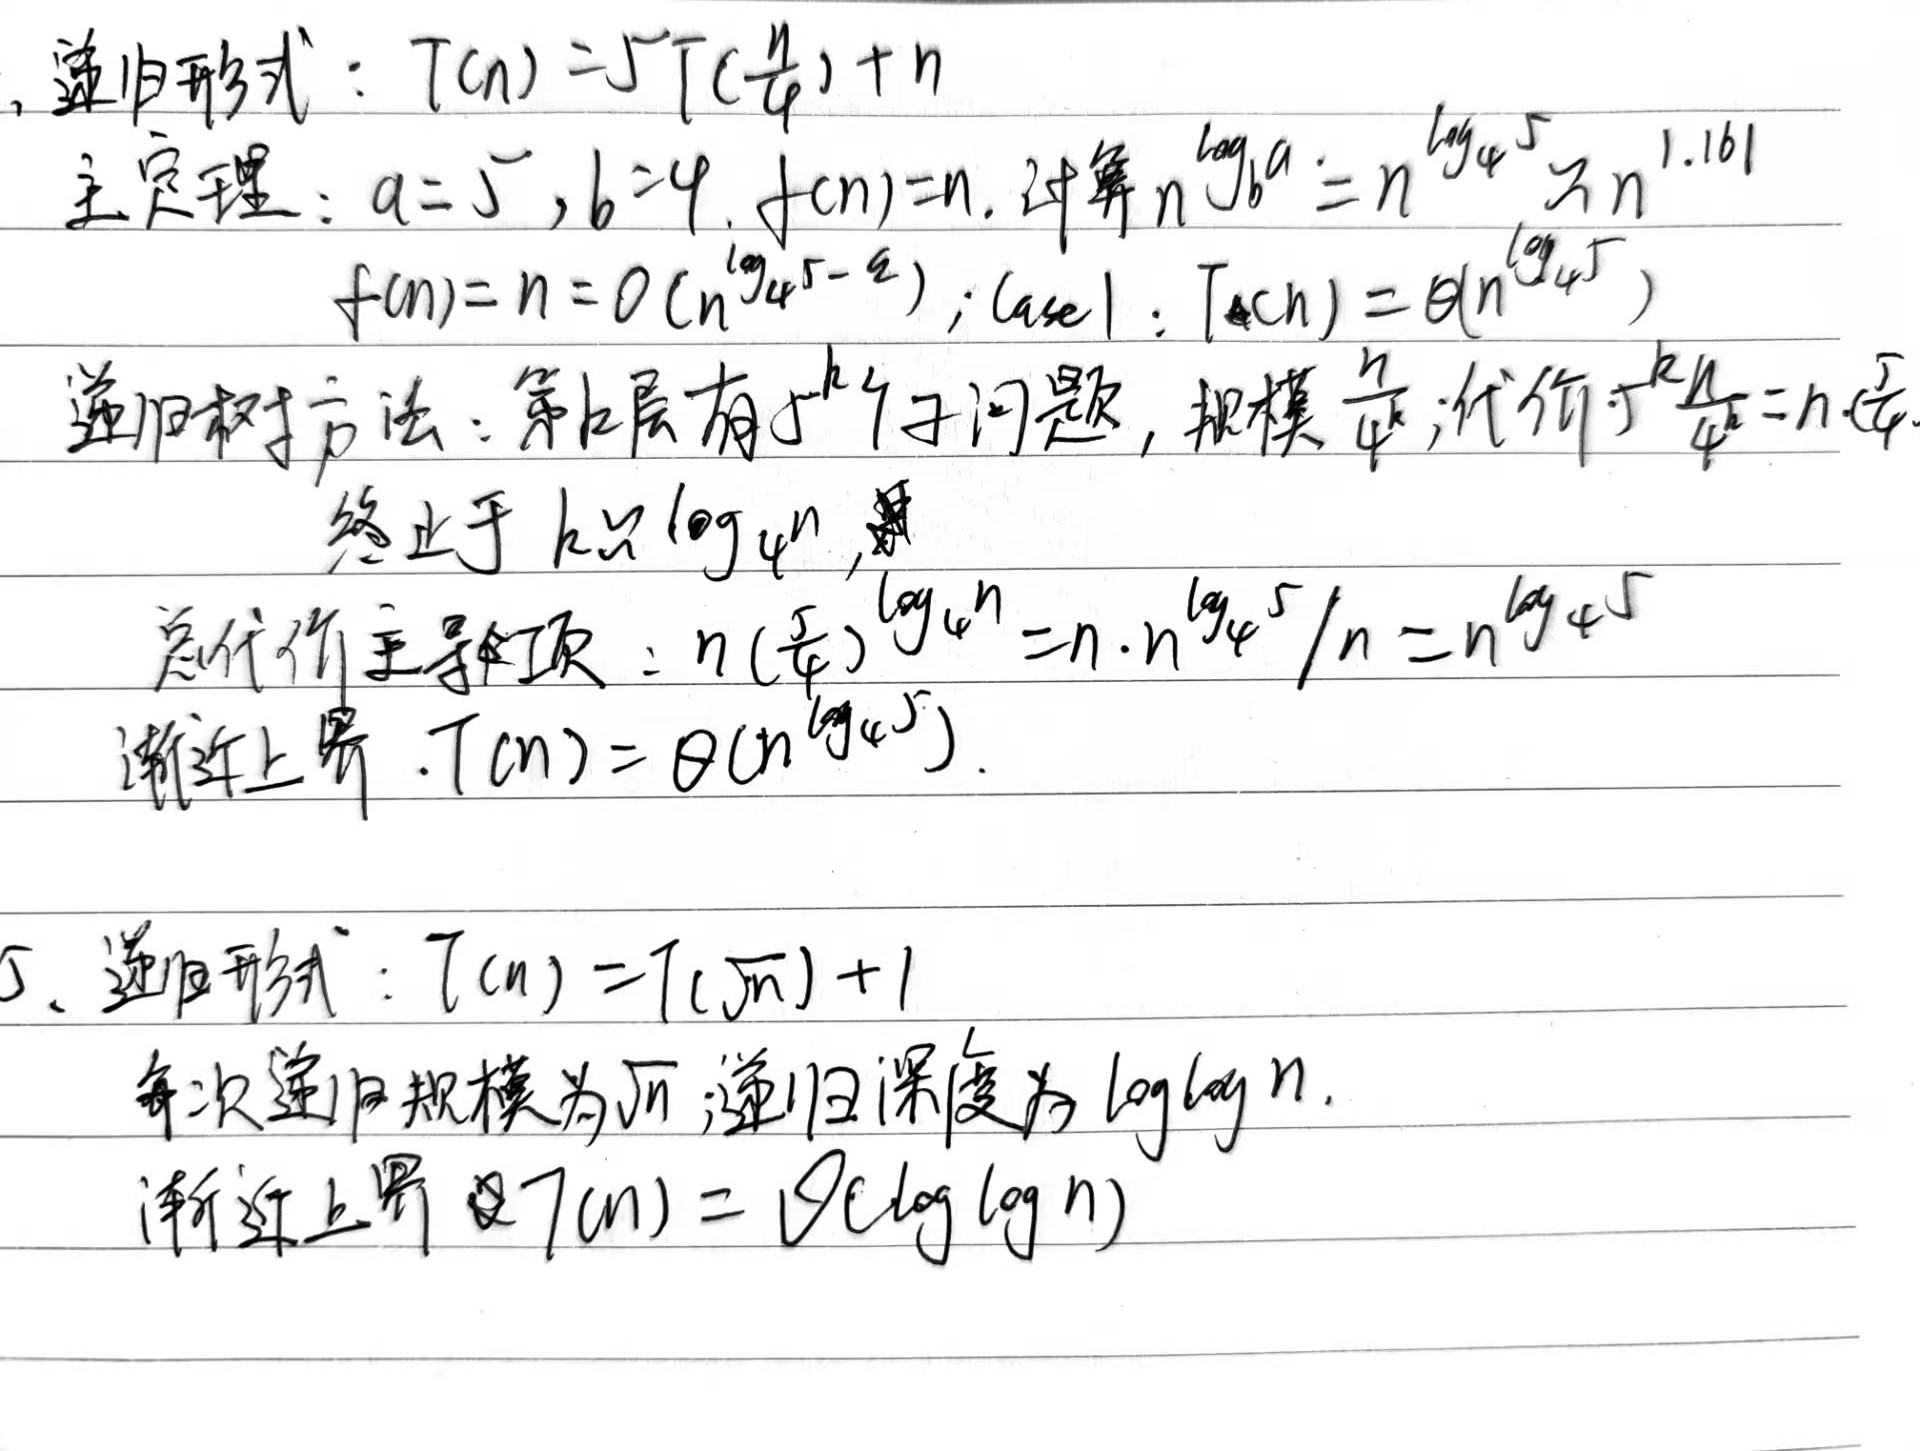 、递归形式：T(n)=5T(n/4)+n
主定理：a=5,b=4.f(n)=n.计算n^{log_b a}=n^{log_4 5}≈n^{1.161}
f(n)=n=O(n^{log_4 5-ε);Case1:T(n)=θ(n^{log_4 5})
递归树方法：第k层有5^k个子问题，规模n/4^k;代价5^k n/4^k=n·(5/4
终止于k≈log_4 n,
总代价主导项：n(5/4)^{log_4 n}=n·n^{log_4 5}/n=n^{log_4 5}
渐近上界.T(n)=θ(n^{log_4 5}).
5、递归形式：T(n)=T(√n)+1
每次递归规模为√n;递归深度为loglog n.
渐近上界T(n)=O(log log n)